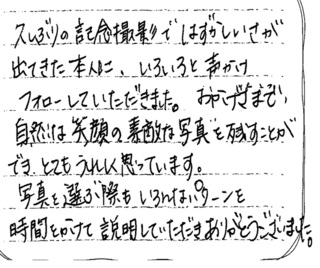 久しぶりの記念撮影ではずかしいさが
出てきた本人に、いろいろと声かけ
フォローしていただきました。おかげさまで、
自然な笑顔の素敵な写真を残すことが
でき、とてもうれしく思っています。
写真を選ぶ際もいろんなパターンを
時間をかけて説明していただきありがとうございました。